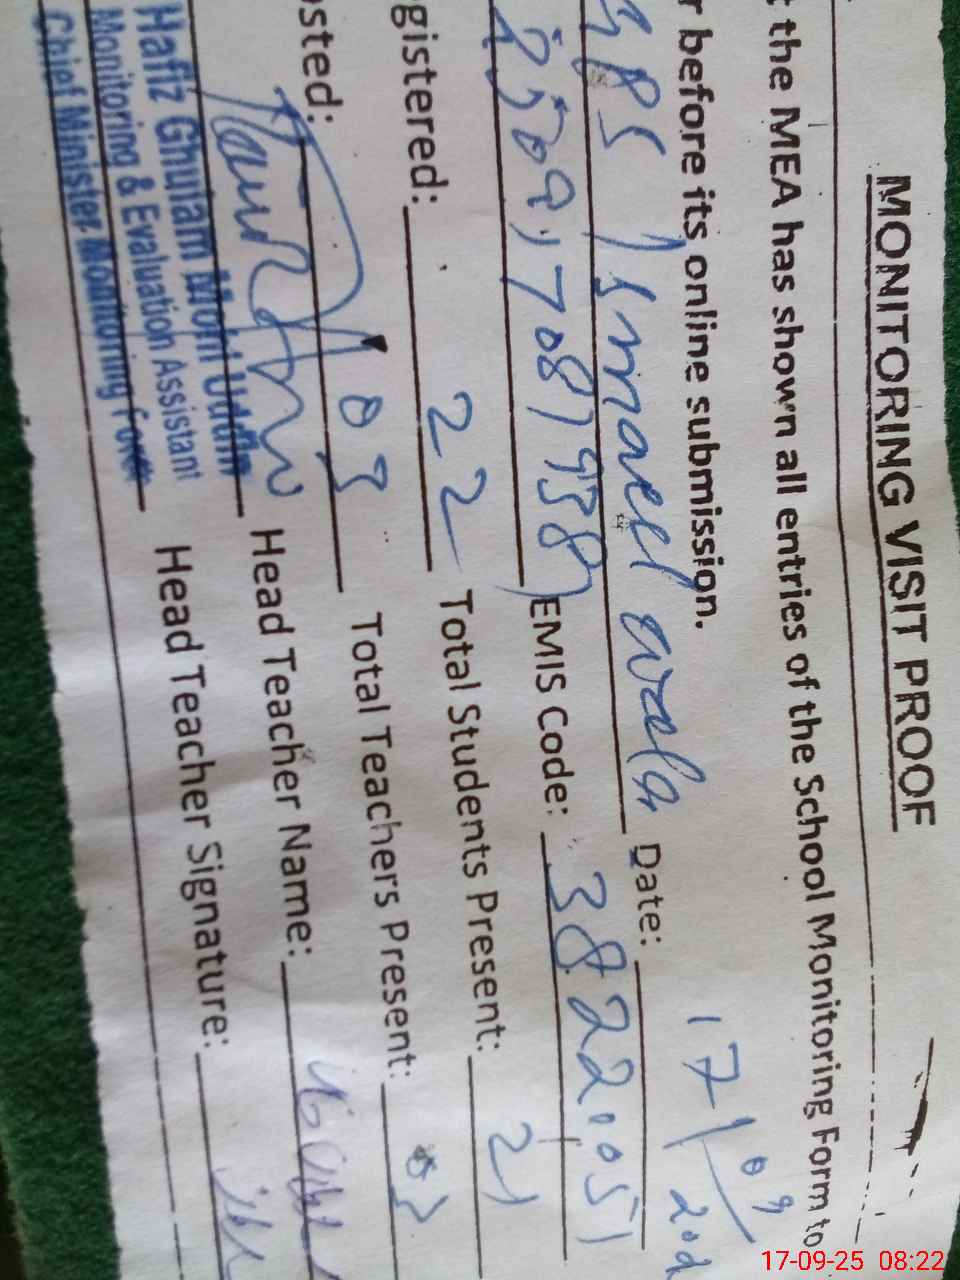 MONITORING VISIT PROOF
t the MEA has shown all entries of the School Monitoring Form to
r before its online submission.
Date: 17/09/202
EMIS Code: 38221051
gistered: 22 Total Students Present: 21
osted: 03 Total Teachers Present: 03
Head Teacher Name:
Head Teacher Signature:
Hafiz Ghulam Mohi Uddin
Monitoring & Evaluation Assistant
Chief Minister Monitoring Force
17-09-25 08:22